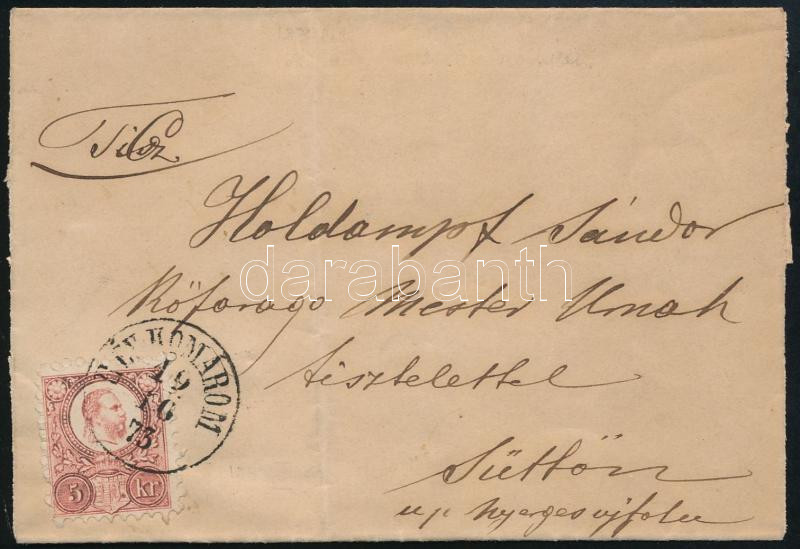 Holdampf Sándor
Kőfaragó Mester Urnak
tisztelettel
Süttőn
u.p. Nyergesujfalu
RÉV KOMÁROM
19
10
73
5 kr
darabanth